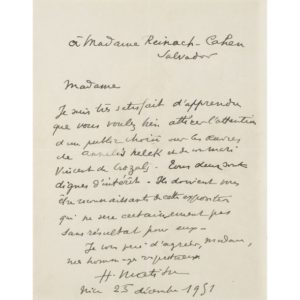 à Madame Reinach-Cohen
Salvador
Madame
Je suis très satisfait d'apprendre
que vous voulez bien attirer l'attention
d'un public choisi sur les œuvres
de Annelies Nelck et de
Vincent de Crozals - Tous deux sont
dignes d'intérêt - Ils doivent vous
être reconnaissants de cette exposition
qui ne sera certainement pas
sans résultat pour eux -
Je vous prie d'agréer, Madame,
mes hommages respectueux
H. Matisse
Nice 25 décembre 1951